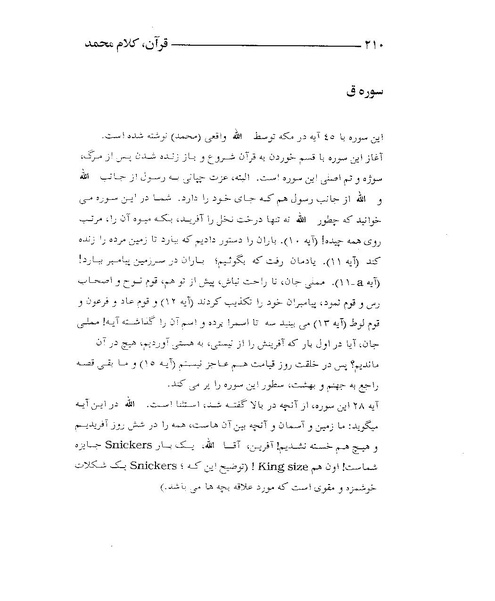 ۲۱۰ قرآن، کلام محمد
سوره ق
این سوره با ٤٥ آیه در مکه توسط الله واقعی (محمد) نوشته شده است.
آغاز این سوره با قسم خوردن به قرآن شروع و باز زنده شدن پس از مرگ،
سوژه و تم اصلی این سوره است. البته، عزت چپانی به رسول از جانب الله
و الله از جانب رسول هم که جای خود را دارد. شما در این سوره می
خوانید که چطور الله نه تنها درخت نخل را آفرید، بلکه میوه آن را، مرتب
روی همه چیده! (آیه ۱۰). باران را دستور دادیم که ببارد تا زمین مرده را زنده
کند (آیه ۱۱). یادمان رفت که بگوئیم؛ باران در سرزمین پیامبر ببارد!
(آیه ۱۱-a). مملی جان، تا راحت نباش، پیش از تو هم، قوم نوح و اصحاب
رس و قوم ثمود، پیامبران خود را تکذیب کردند (آیه ۱۲) و قوم عاد و فرعون و
قوم لوط (آیه ۱۳) می بینید سه تا اسمرا برده و اسم آن را گذاشته آیه! مملی
جان، آیا در اول بار که آفرینش را از نیستی، به هستی آوردیم، هیچ در آن
ماندیم؟ پس در خلقت روز قیامت هم عاجز نیستم (آیه ۱۵) و ما بقی قصه
راجع به جهنم و بهشت، سطور این سوره را پر می کند.
آیه ۲۸ این سوره، از آنچه در بالا گفته شد، استثنا است. الله در این آیه
میگوید: ما زمین و آسمان و آنچه بین آن هاست، همه را در شش روز آفریدیم
و هیچ هم خسته نشدیم! آفرین، آقا الله، یک بار Snickers جایزه
شماست! اون هم King size ! (توضیح این که ؛ Snickers یک شکلات
خوشمزه و مقوی است که مورد علاقه بچه ها می باشد.)